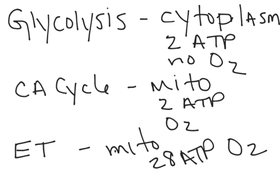 Glycolysis - cytoplasm
2 ATP
no O2
CA Cycle - mito
2 ATP
O2
ET - mito
28 ATP O2